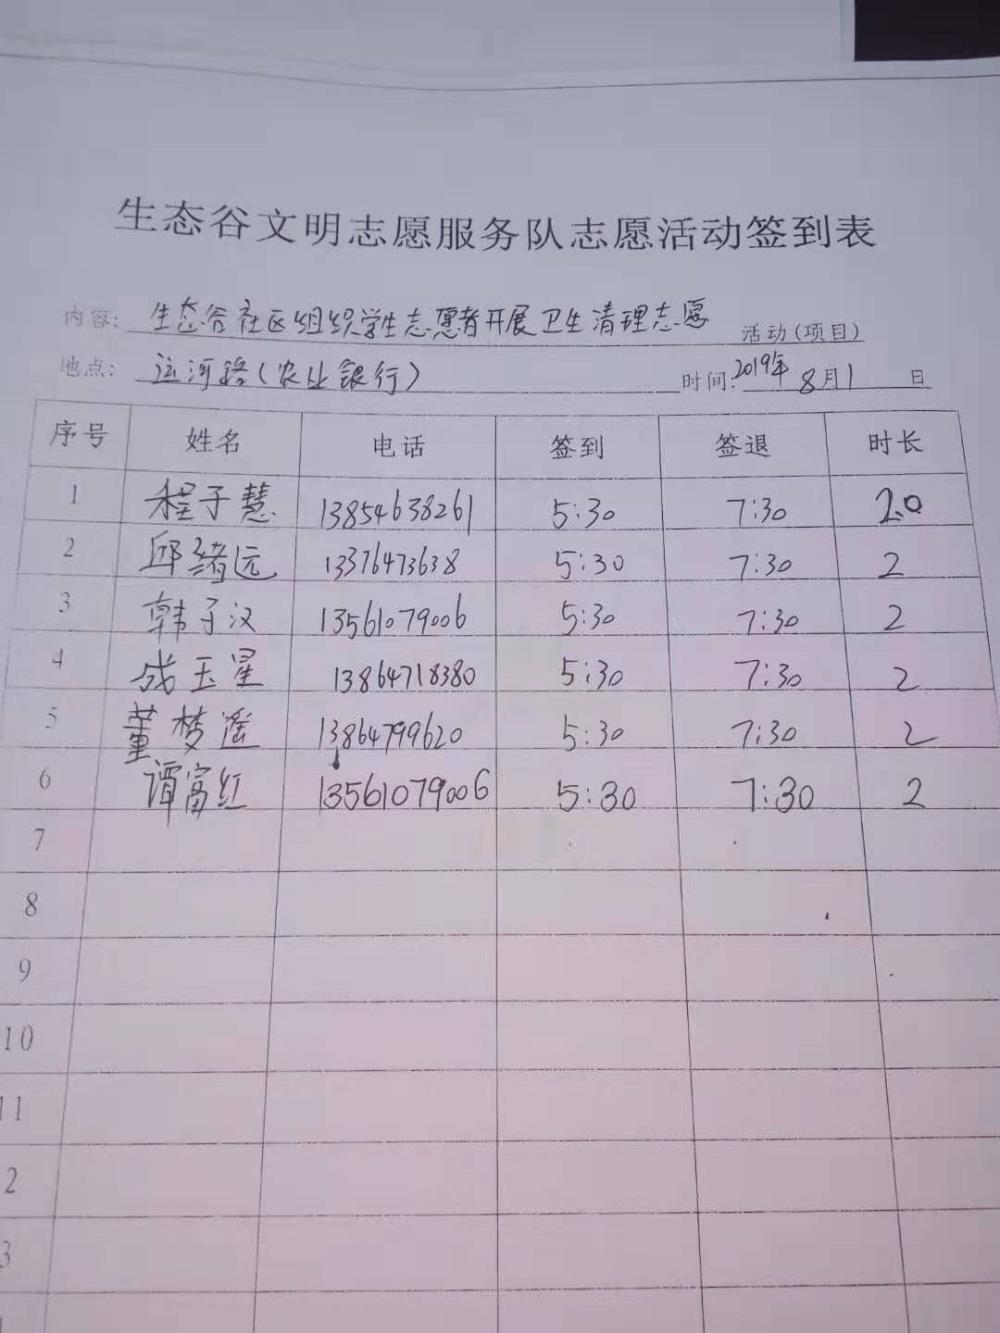 生态谷文明志愿服务队志愿活动签到表
内容: 生态谷社区组织学生志愿者开展卫生清理志愿 活动(项目)
地点: 运河路(农业银行) 时间: 2019年8月1 日
序号 姓名 电话 签到 签退 时长
1 程子慧 13854638261 5:30 7:30 2.0
2 邱绪远 13376473638 5:30 7:30 2
3 韩子汉 13561079006 5:30 7:30 2
4 成玉星 13864718380 5:30 7:30 2
5 董梦遥 13864799620 5:30 7:30 2
6 谭富红 13561079006 5:30 7:30 2
7
8
9
10
11
2
3